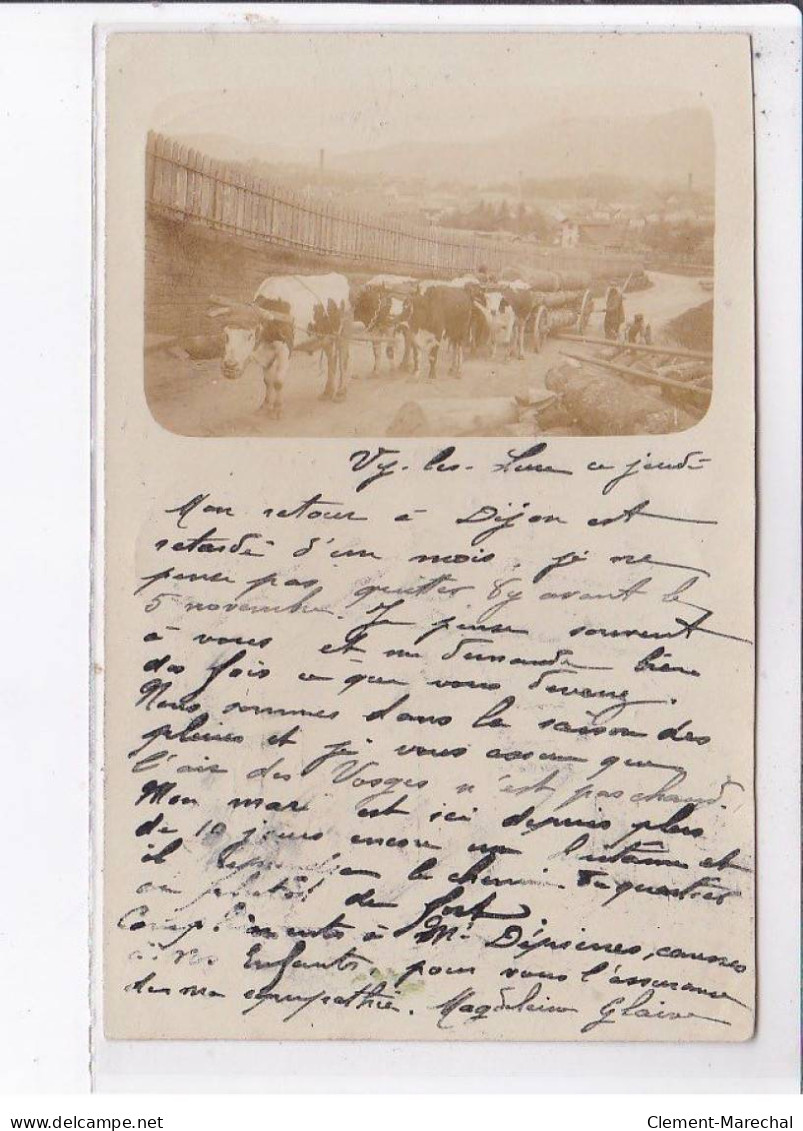 Vy-les-Lure ce jeudi
Mon retour à Dijon est
retardé d'un mois, je ne
pense pas quitter Vy avant le
5 novembre. Je pense souvent
à vous et me demande bien
des fois ce que vous devenez.
Nous sommes dans la saison des
pluies et je vous assure que
l'air des Vosges n'est pas chaud.
Mon mari est ici depuis plus
de 10 jours encore une et
il le chemin du quartier
ou plutôt du fort
Compliments à Mr caresses
à vos Enfants, pour vous l'assurance
de ma sympathie. Magdeleine Glaire
Clement-Marechal